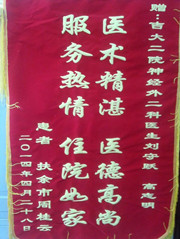 赠：吉大二院神经外二科医生刘守跃
高志明
医术精湛 医德高尚
服务热情 住院如家
患者 扶余市阎桂云
二〇一四年四月二十八日